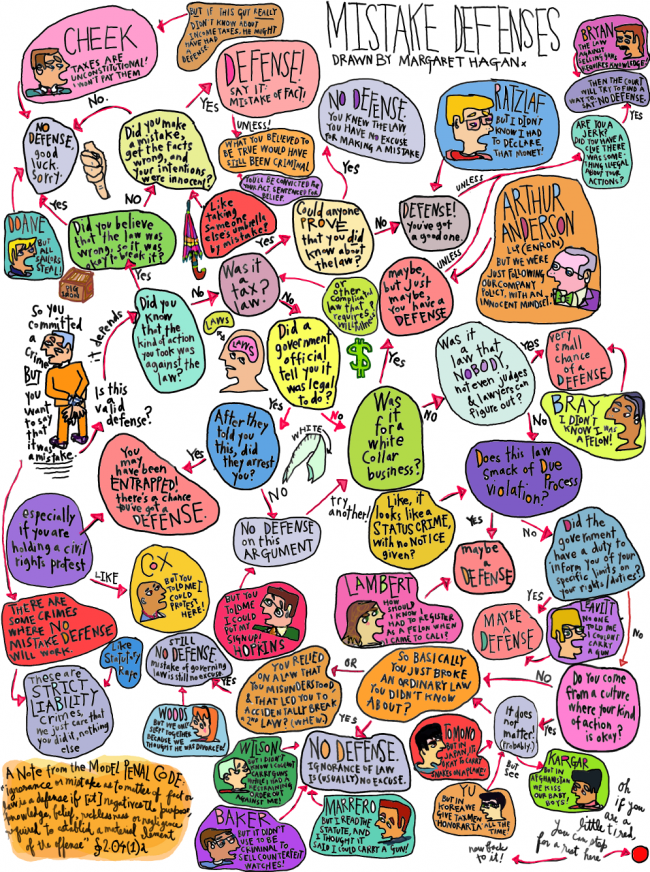 MISTAKE DEFENSES
DRAWN BY MARGARET HAGAN
CHEEK
TAXES ARE
UNCONSTITUTIONAL!
I WON'T PAY THEM
BUT IF THIS GUY REALLY
DIDN'T KNOW ABOUT
INCOME TAXES, HE MIGHT
HAVE HAD A
DEFENSE
DEFENSE!
SAY IT:
MISTAKE OF FACT!
UNLESS!
WHAT YOU BELIEVED TO
BE TRUE WOULD HAVE
STILL BEEN CRIMINAL
YOU'LL BE CONVICTED FOR
YOUR ACT SENTENCED FOR
BELIEF.
NO DEFENSE.
YOU KNEW THE LAW
YOU HAVE NO EXCUSE
FOR MAKING A MISTAKE
RATZLAF
BUT I DIDN'T
KNOW I HAD
TO DECLARE
THAT MONEY!
BRYAN
THE LAW
AGAINST
SELLING GUNS
REQUIRES KNOWLEDGE!
THEN THE COURT
WILL TRY TO FIND A
WAY TO
SAY: NO DEFENSE
ARE YOU A
JERK?
DID YOU HAVE A
CLUE THERE
WAS SOME-
THING ILLEGAL
ABOUT YOUR
ACTIONS?
UNLESS
NO.
YES
NO DEFENSE,
good
luck,
sorry.
Did you make
a mistake,
get the facts
wrong, and
your intentions
were innocent?
DOANE
BUT
ALL
SAILORS
STEAL!
PIG
IRON
Yes
Did you believe
that the law was
wrong, so it was
okay to break it?
Yes
Like
taking
someone
else's umbrella
by mistake?
Could anyone
PROVE
that you did
know about
the law?
YES
NO
DEFENSE!
You've got
a good one.
ARTHUR
ANDERSON
LLP (ENRON)
BUT WE WERE
JUST FOLLOWING
OUR COMPANY
POLICY, WITH AN
INNOCENT MINDSET.
UNLESS
So you
committed
a
crime
BUT
you
want
to say
that
it was
a mistake
Is this
a valid
defense?
it depends
Did you
know that
the kind of action
you took was
against the
law?
No
Was it
a tax
law?
Yes
No
or other
complicated
law that
requires
willfulness?
maybe,
but just
maybe
you have a
DEFENSE
LAWS
LAWS
Did a
government
official
tell you it
was legal
to do?
Yes
No
YES
Was
it
for a
white
Collar
business?
NO
Was it
a law that
NOBODY,
not even judges
& lawyers can
figure out?
YES
very
small
chance
of a
DEFENSE
BRAY
I DIDN'T
KNOW I WAS
A FELON!
NO
After they
told you
this, did
they arrest
you?
Yes
NO
WHITE
You
may
have been
ENTRAPPED!
there's a chance
you've got a
DEFENSE.
especially
if you are
holding a civil
rights protest
LIKE
COX
BUT YOU
TOLD ME I
COULD
PROTEST
HERE!
NO DEFENSE
on this
ARGUMENT
try
another!
Like, it
looks like a
STATUS CRIME,
with no NOTICE
given?
Does this law
smack of Due Process
Violation?
YES
NO
maybe
a
DEFENSE
Did the
government
have a duty to
inform you of your
specific limits on
your rights/duties?
YES
NO
MAYBE
A
DEFENSE
LEAVITT
NO ONE
TOLD ME
I COULDN'T
CARRY
A GUN
LAMBERT
HOW
SHOULD
I KNOW I
HAD TO REGISTER
AS A FELON WHEN
I CAME TO CALI?
BUT YOU
TOLD ME
I COULD
PUT MY
SIGN UP!
HOPKINS
THERE ARE
SOME CRIMES
WHERE NO
MISTAKE DEFENSE
WILL WORK.
Like
Statutory
Rape
These are
STRICT
LIABILITY
crimes,
we just care that
you did it, nothing
else
STILL
NO DEFENSE
mistake of governing
law is still no excuse
YES
WOODS
BUT WE ONLY
SLEPT TOGETHER
BECAUSE WE
THOUGHT HE WAS DIVORCED!
YOU RELIED
ON A LAW THAT
YOU MISUNDERSTOOD
& THAT LED YOU TO
ACCIDENTALLY BREAK
A 2ND LAW? (WHEW)
OR
SO BASICALLY
YOU JUST BROKE
AN ORDINARY LAW
YOU DIDN'T KNOW
ABOUT?
YES
NO
Do you come
from a culture
where your kind
of action
is okay?
Yes
It does
not matter!
(Probably.)
But
see
TOMONO
BUT IN
JAPAN, IT'S
OKAY TO CARRY
SNAKES ON A PLANE!
KARGAR
BUT IN
AFGHANISTAN
WE KISS
OUR BABY
BOYS!
YU
BUT IN
KOREA WE
GIVE TAXMEN
HONORARIA ALL THE
TIME!
WILSON
BUT I DIDN'T
KNOW I COULDN'T
CARRY GUNS
WHILE I HAD A
RESTRAINING
ORDER ON
AGAINST ME!
NO DEFENSE.
IGNORANCE OF LAW
IS (USUALLY) NO EXCUSE.
BAKER
BUT IT DIDN'T
USE TO BE
CRIMINAL TO
SELL COUNTERFEIT
WATCHES!
MARRERO
BUT I READ THE
STATUTE, AND
I THOUGHT IT
SAID I COULD CARRY A GUN!
A Note from the MODEL PENAL CODE:
"ignorance or mistake as to matter of fact or
law is a defense if [it] negatives the purpose,
knowledge, belief, recklessness or negligence
required to establish a material element
of the offense" § 2.04(1)a
oh
if you
are a
little tired,
You can stop
for a rest here
now back
to it!